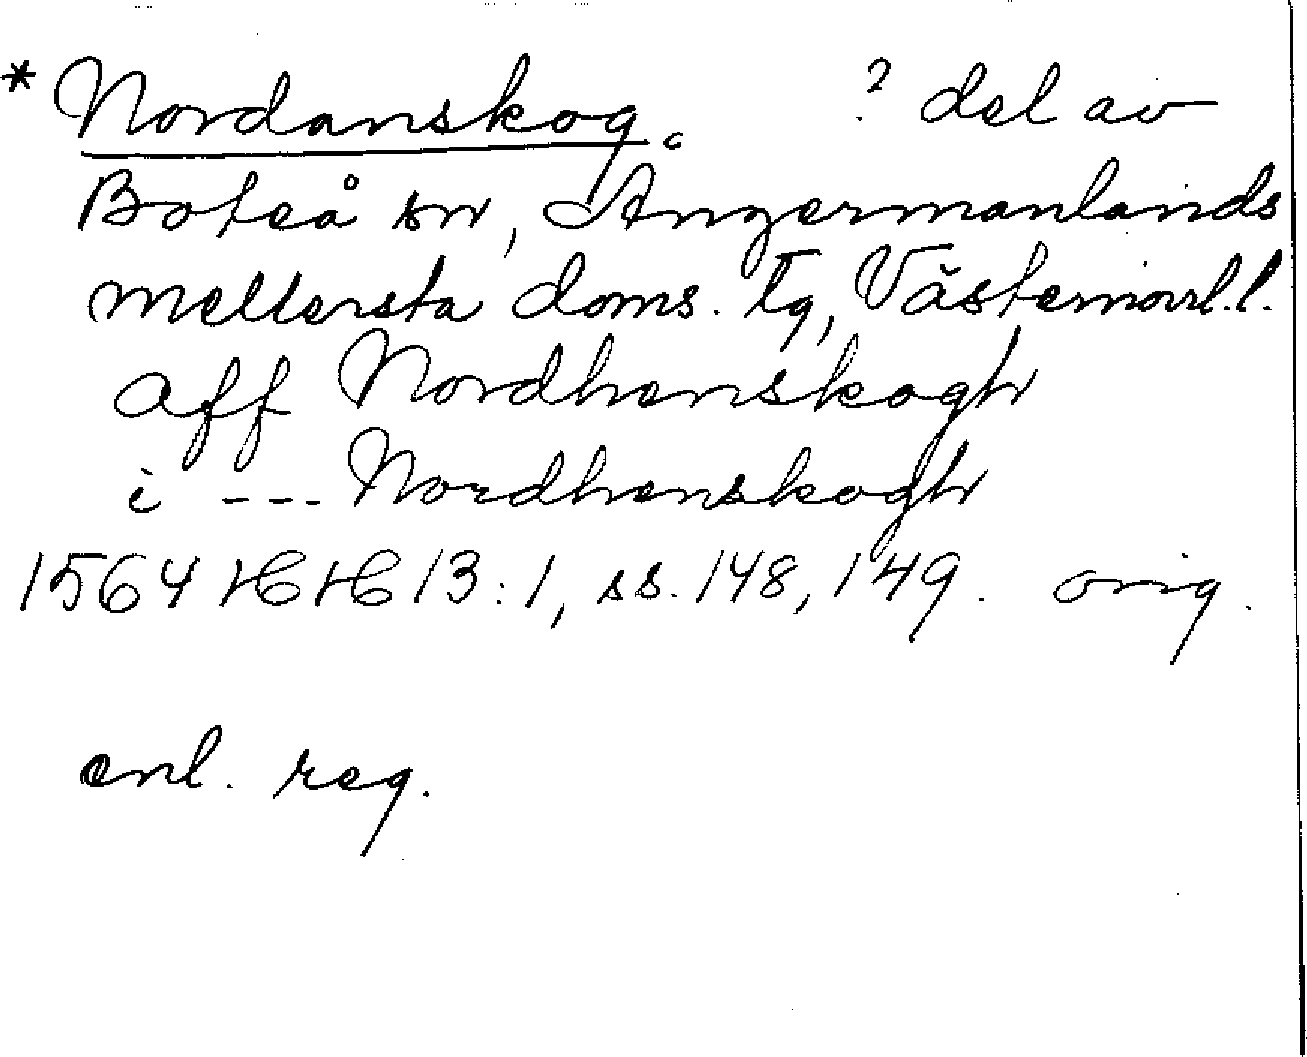 * Nordanskog. ? del av
Boteå sn, Ångermanlands
mellersta doms. tg, Västernorrl.l.
aff Nordhenskogh
i --- Nordhenskogh
1564 HH 13:1, ss. 148, 149. orig.
enl. reg.